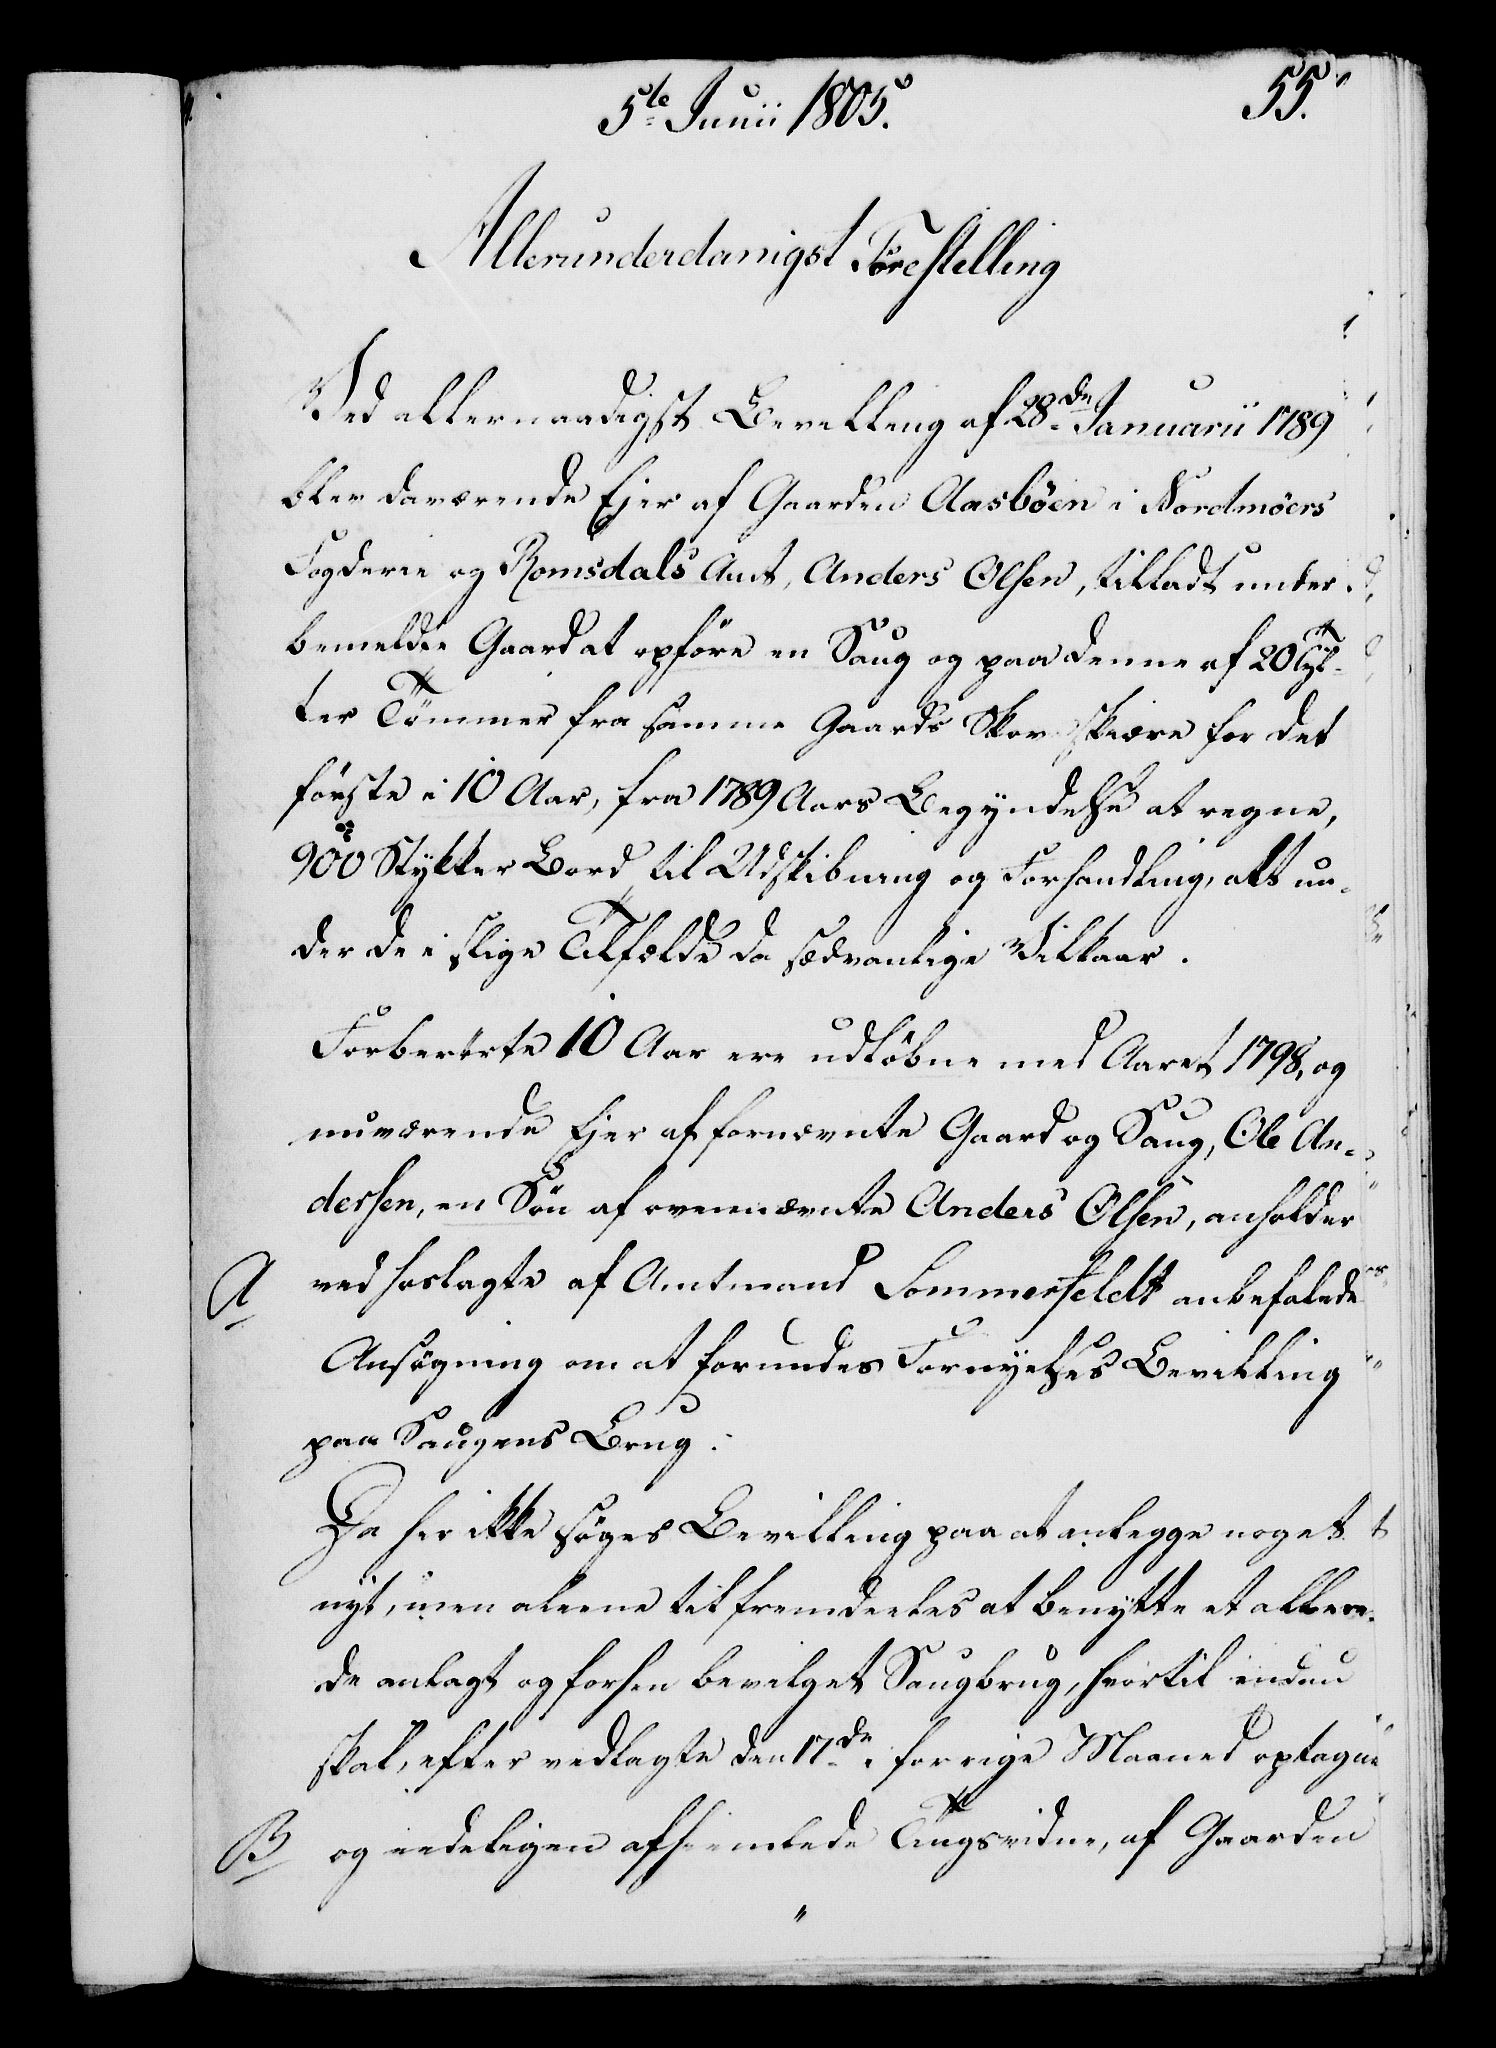 5te Junii 1805.
55.
Allerunderdanigst Forestelling
Ved allernaadigst Bevilling af 28de Januarii 1789
blev daværende Ejer af Gaarden Aasböen i Nordmöers
Fogderie og Romsdals Amt, Anders Olsen, tilladt under
bemeldte Gaard at opföre en Saug og paa denne af 20 Tyl-
ter Tömmer fra samme Gaards Skov skiære for det
förste i 10 Aar, fra 1789 Aars Begyndelse at regne,
900 Stykker Bord til Udskibning og Forhandling, alt un-
der de i slige Tilfælde da sædvanlige Vilkaar.
Forberörte 10 Aar ere udlöbne med Aaret 1798, og
nuværende Ejer af fornævnte Gaard og Saug, Ole An-
dersen, en Sön af ovennævnte Anders Olsen, anholder
A ved hoslagte af Amtmand Sommerfeldt anbefalede
Ansögning om at forundes Fornyelses Bevilling
paa Saugens Brug.
Da her ikke söges Bevilling paa at anlegge noget
nyt, men aleene til fremdeeles at benytte et allere-
de anlagt og forhen bevilget Saugbrug, hvortil endnu
skal, efter vedlagte den 17de i forrige Maaned optagne
B og eedeligen afhiemlede Tingsvidne, af Gaarden